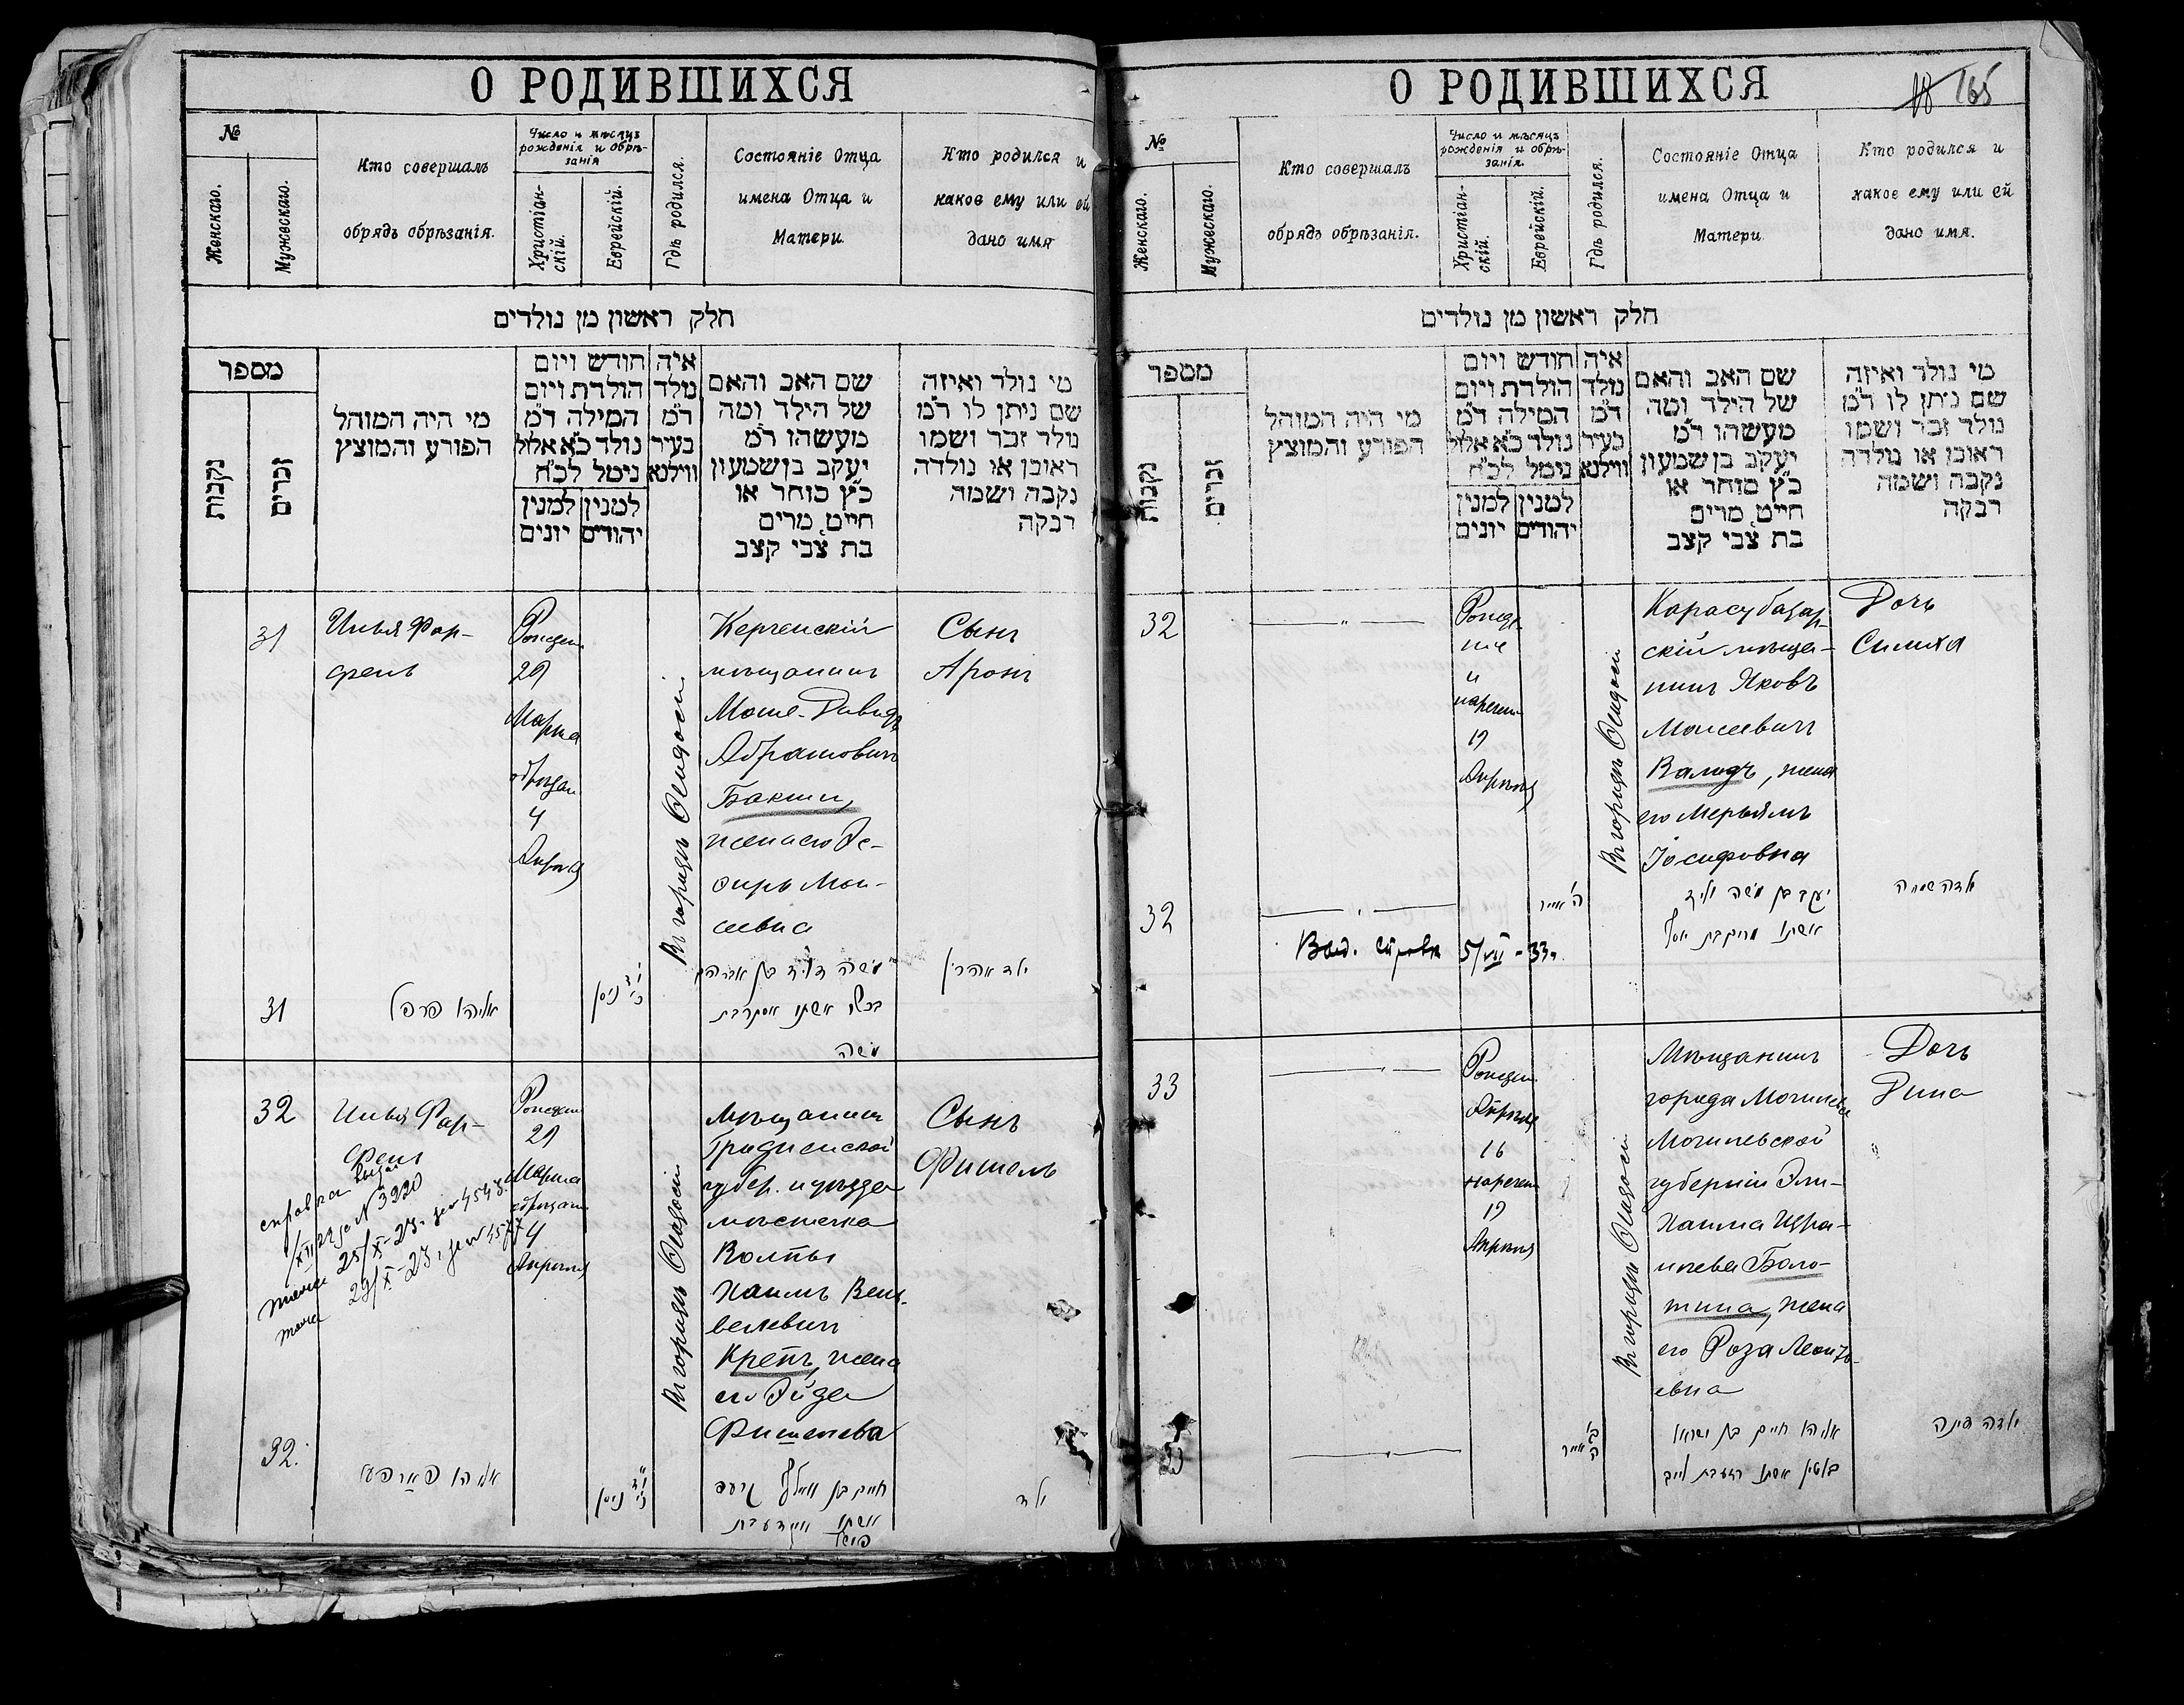 О РОДИВШИХСЯ
№
Женскаго.
Мужескаго.
Кто совершалъ
обрядъ обрѣзанія.
Число и мѣсяцъ
рожденія и обрѣ-
занія
Христіан-
скій.
Еврейскій.
Гдѣ родился.
Состояніе Отца
имена Отца и
Матери.
Кто родился и
какое ему или ей
дано имя
חלק ראשון מן נולדים
מספר
נקבות
זכרים
מי היה המוהל
הפורע והמוצץ
חודש ויום
הולדת ויום
המילה ד״מ
נולד כ״א אלול
נימל לכ״ח
למנין יונים
למנין יהודים
איה
נולד
ד״מ
בעיר
ווילנא
שם האב והאם
של הילד ומה
מעשהו ד״מ
יעקב בן שמעון
כ״ץ סוחר או
חייט מרים
בת צבי קצב
מי נולד ואיזה
שם ניתן לו ד״מ
נולד זכר ושמו
ראובן או נולדה
נקבה ושמה
רבקה
31
Илья Фар-
фель
Рожден
29
Марта
обрѣзан
4
Апрѣля
Въ городѣ Ѳеодосіи
Керченскій
мѣщанинъ
Моше-Давидъ
Абрамовичъ
Бакши,
жена его Эс-
фирь Мои-
сеевна
Сынъ
Аронъ
31
אליהו פרפל
י״ד ניסן
משה דוד בן אברהם
בכשי אשתו אסתר בת
משה
ילד אהרן
32
Илья Фар-
фель
справка выдан
тоже 25/X-23. за № 4543.
тоже 29/X-23, за № 4577
Рожден
29
Марта
обрѣзан
4
Апрѣля
Въ городѣ Ѳеодосіи
Мѣщанинъ
Гродненской
губер. и уѣзда
мѣстечка
Волпы
Хаимъ Вель-
велевичъ
Крепъ, жена
его Эйде
Фишелева
Сынъ
Фишель
32.
אליהו פארפעל
י״ד ניסן
ילד
О РОДИВШИХСЯ
165
№
Женскаго.
Мужескаго.
Кто совершалъ
обрядъ обрѣзанія.
Число и мѣсяцъ
рожденія и обрѣ-
занія.
Христіан-
скій.
Еврейскій.
Гдѣ родился.
Состояніе Отца
имена Отца и
Матери
Кто родился и
какое ему или ей
дано имя.
חלק ראשון מן נולדים
מספר
נקבות
זכרים
מי היה המוהל
הפורע והמוצץ
חודש ויום
הולדת ויום
המילה ד״מ
נולד כ״א אלול
נימל לכ״ח
למנין יונים
למנין יהודים
איה
נולד
ד״מ
בעיר
ווילנא
שם האב והאם
של הילד ומה
מעשהו ד״מ
יעקב בן שמעון
כ״ץ סוחר או
חייט מרים
בת צבי קצב
מי נולד ואיזה
שם ניתן לו ד״מ
נולד זכר ושמו
ראובן או נולדה
נקבה ושמה
רבקה
32
Рожде-
ніе
и
наречен
19
Апрѣля
Въ городѣ Ѳеодосіи
Карасубазар-
скій мѣща-
нинъ Яковъ
Моисеевичъ
Валидъ, жена
его Мерьямъ
Іосифовна
Дочь
Симха
32
ה׳ אייר
יעקב בן משה וליד
אשתו מרים בת יוסף
ילדה שמחה
Выд. справка 5/VII-33г.
33
Рожден
Апрѣля
16
наречен
19
Апрѣля
Въ городѣ Ѳеодосіи
Мѣщанинъ
города Могилева
Могилевской
губерніи Эли-
Хаима Изра-
илева Боло-
тина, жена
его Роза Леонть-
евна
Дочь
Дина
33
אליהו חיים בן ישראל
ילדה דינה